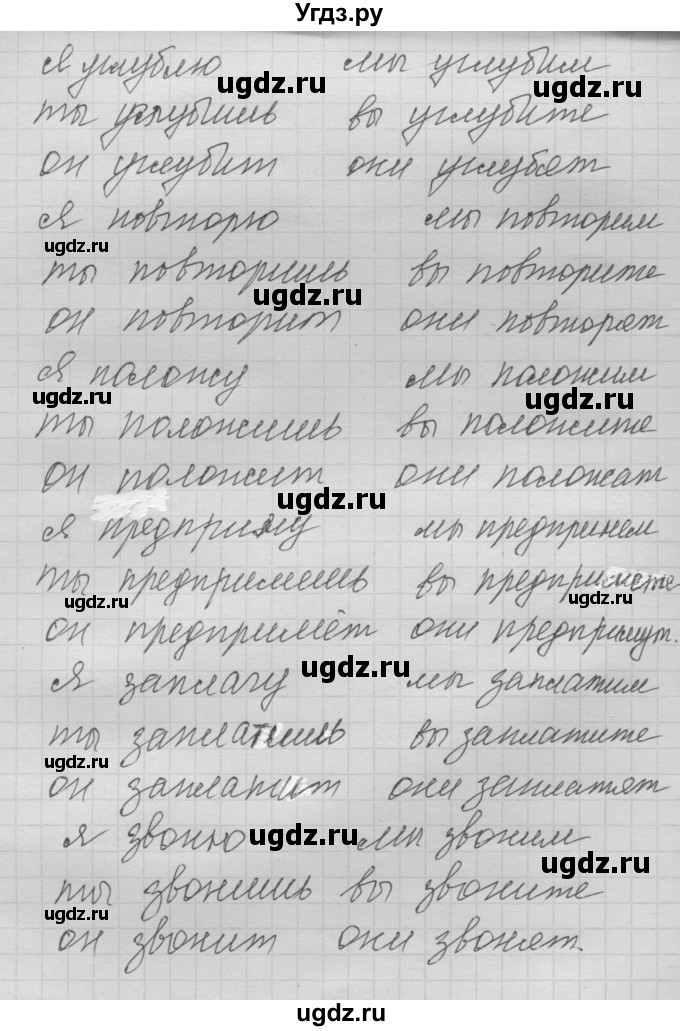 Угдз.ру
я углублю мы углубим
ugdz.ru ugdz.ru
ты углубишь вы углубите
он углубит они углубят
я повторю мы повторим
ugdz.ru
ты повторишь вы повторите
ugdz.ru
он повторит они повторят
я положу мы положим
ugdz.ru ugdz.ru
ты положишь вы положите
он положит они положат
ugdz.ru
я предприму мы предпримем
ugdz.ru
ты предпримешь вы предпримете
ugdz.ru ugdz.ru
он предпримёт они предпримут.
ugdz.ru
я заплачу мы заплатим
ты заплатишь вы заплатите
ugdz.ru
он заплатит они заплатят
я звоню мы звоним
ugdz.ru ugdz.ru
ты звонишь вы звоните
ugdz.ru
он звонит они звонят.
ugdz.ru